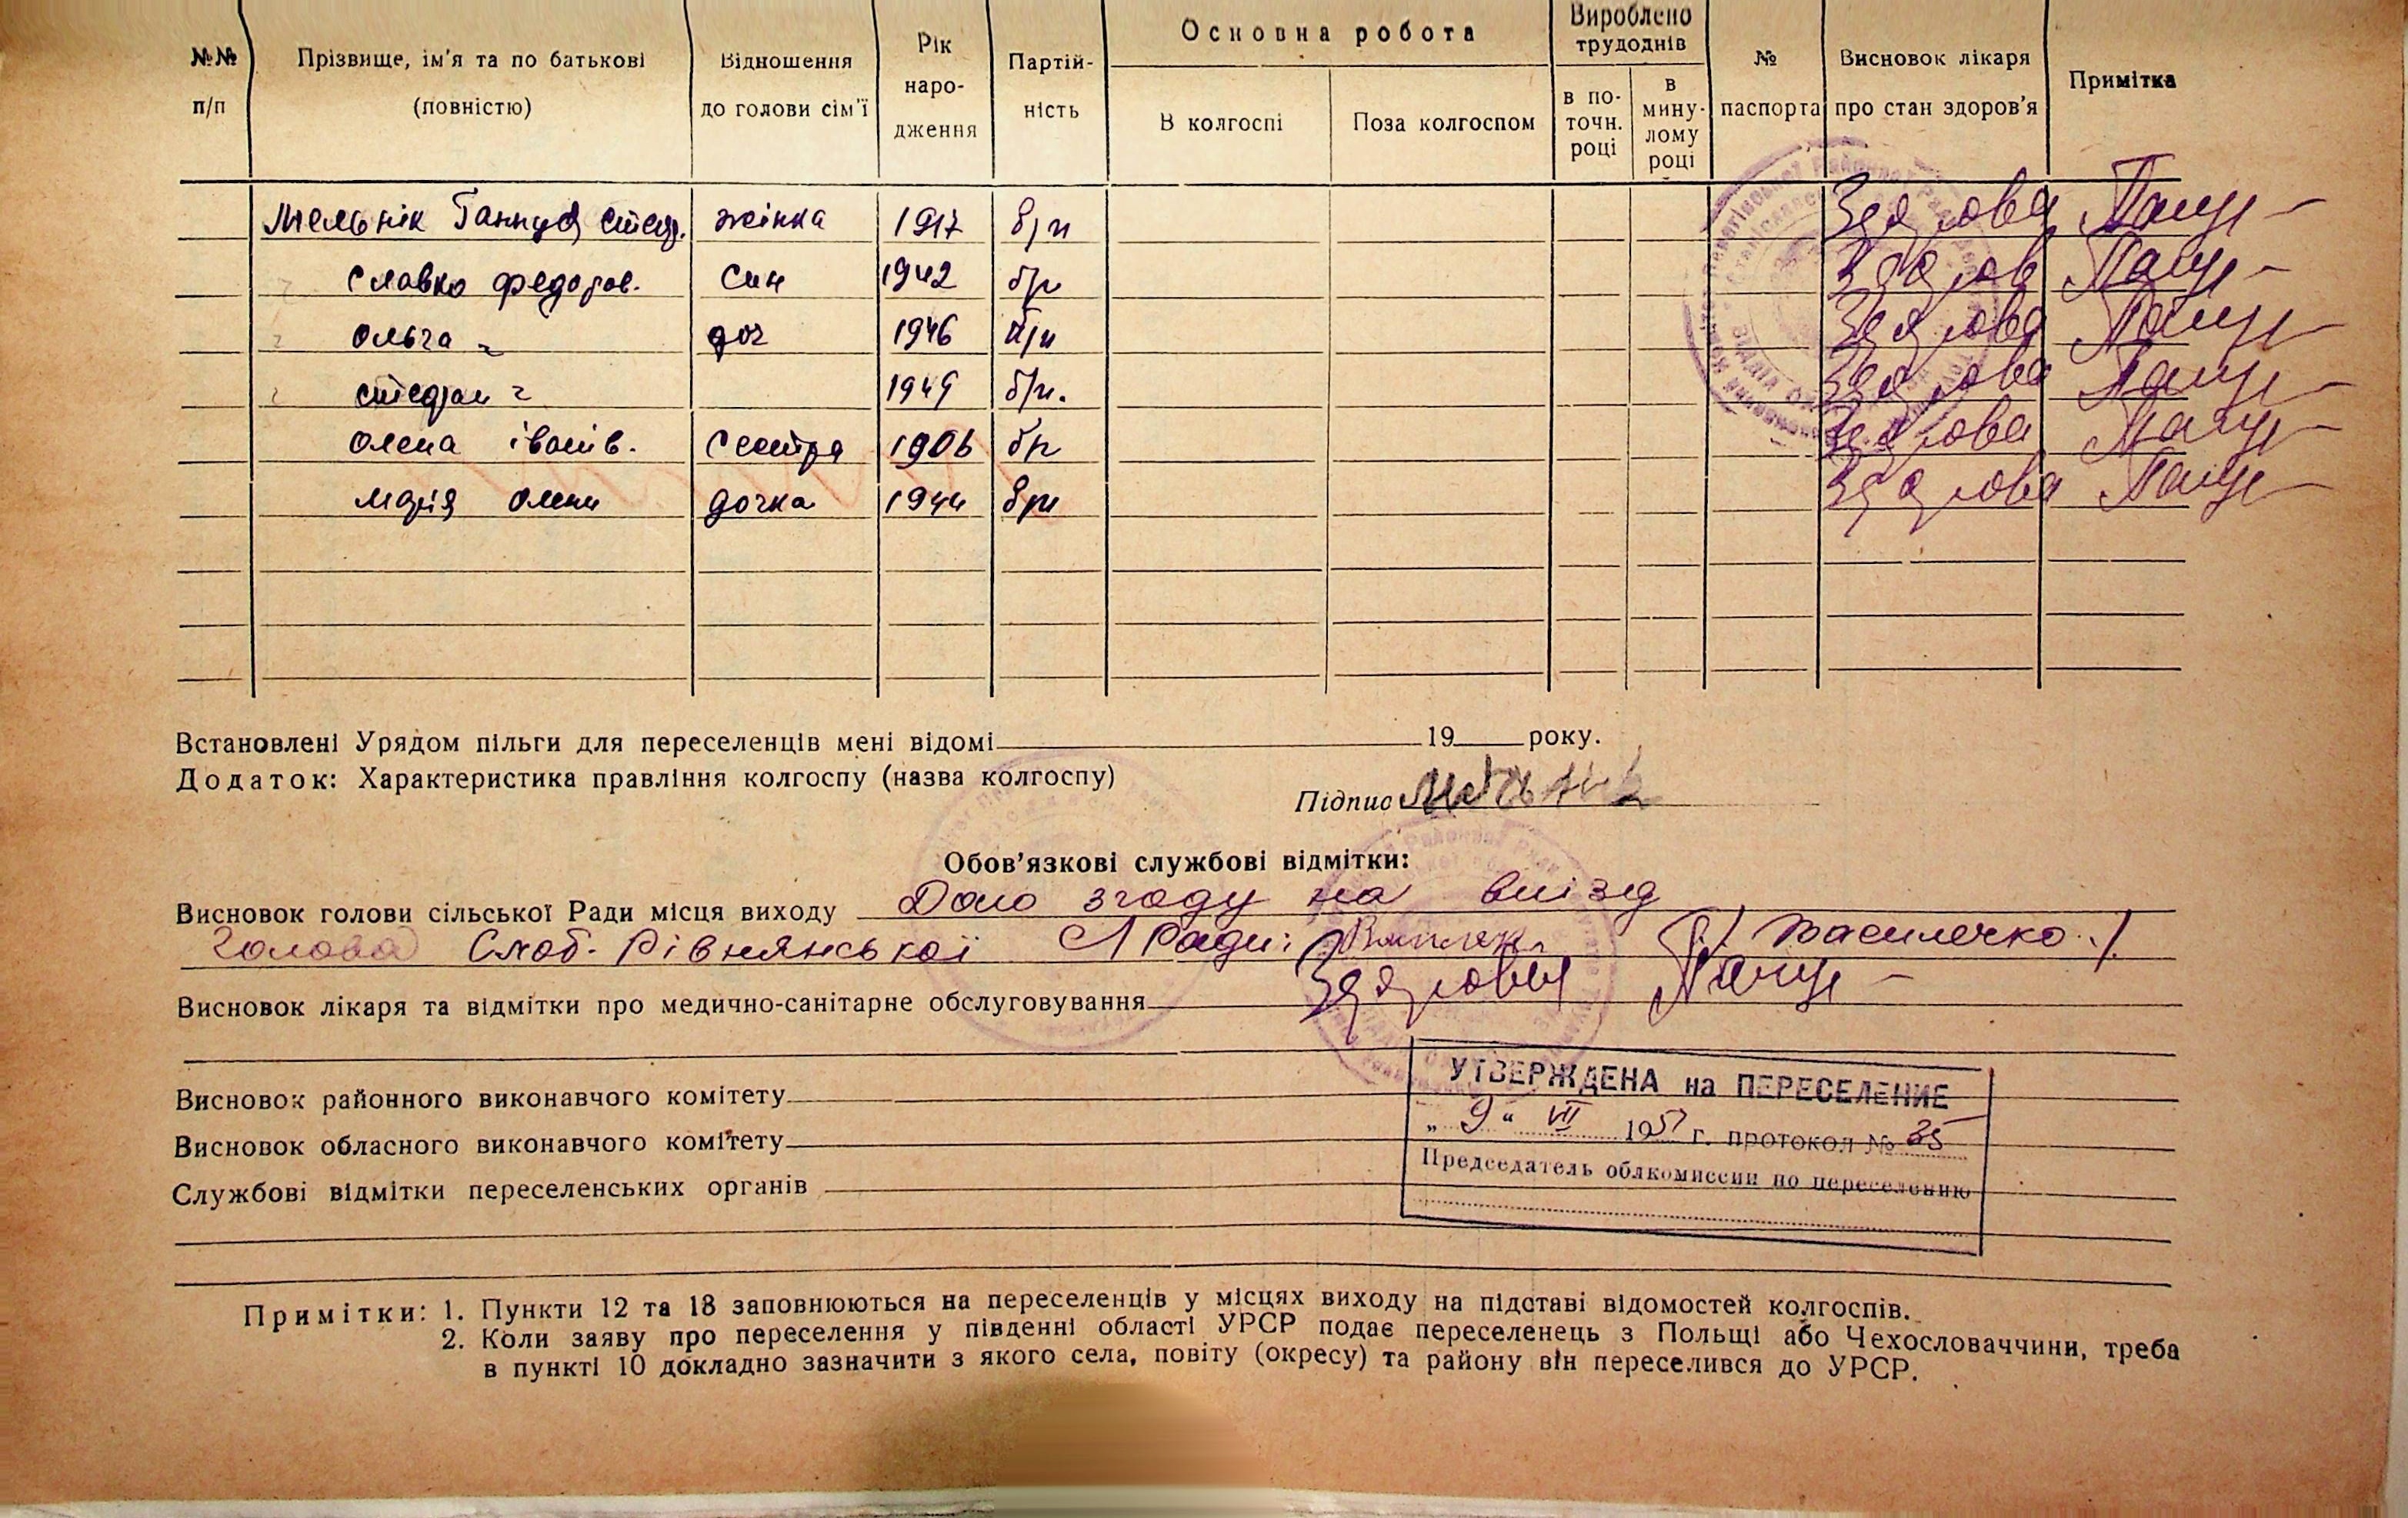 №№ п/п Прізвище, ім'я та по батькові (повністю) Відношення до голови сім'ї Рік народження Партійність Основна робота В колгоспі Поза колгоспом Вироблено трудоднів в поточн. році в минулому році № паспорта Висновок лікаря про стан здоров'я Примітка
Мельнік Ганнуся Стеф. жінка 1917 б/п Здорова
Славко Федоров. син 1942 б/п Здоров
Ольга доч 1946 б/п Здорова
Стефан 1949 б/п. Здорова
Олена Іванів. Сестра 1906 б/п Здорова
Марія Олени дочка 1944 б/п Здорова
Встановлені Урядом пільги для переселенців мені відомі 19 року.
Додаток: Характеристика правління колгоспу (назва колгоспу)
Підпис Мельник
Обов'язкові службові відмітки:
Висновок голови сільської Ради місця виходу Даю згоду на виїзд
Голова Слоб. Рівнянської с/Ради: /Василечко./
Висновок лікаря та відмітки про медично-санітарне обслуговування Здорові
Висновок районного виконавчого комітету
Висновок обласного виконавчого комітету
Службові відмітки переселенських органів
УТВЕРЖДЕНА на ПЕРЕСЕЛЕНИЕ
„ 9 “ VII 1951 г. протокол № 35
Председатель облкомиссии по переселению
Примітки: 1. Пункти 12 та 18 заповнюються на переселенців у місцях виходу на підставі відомостей колгоспів.
2. Коли заяву про переселення у південні області УРСР подає переселенець з Польщі або Чехословаччини, треба
в пункті 10 докладно зазначити з якого села, повіту (окресу) та району він переселився до УРСР.